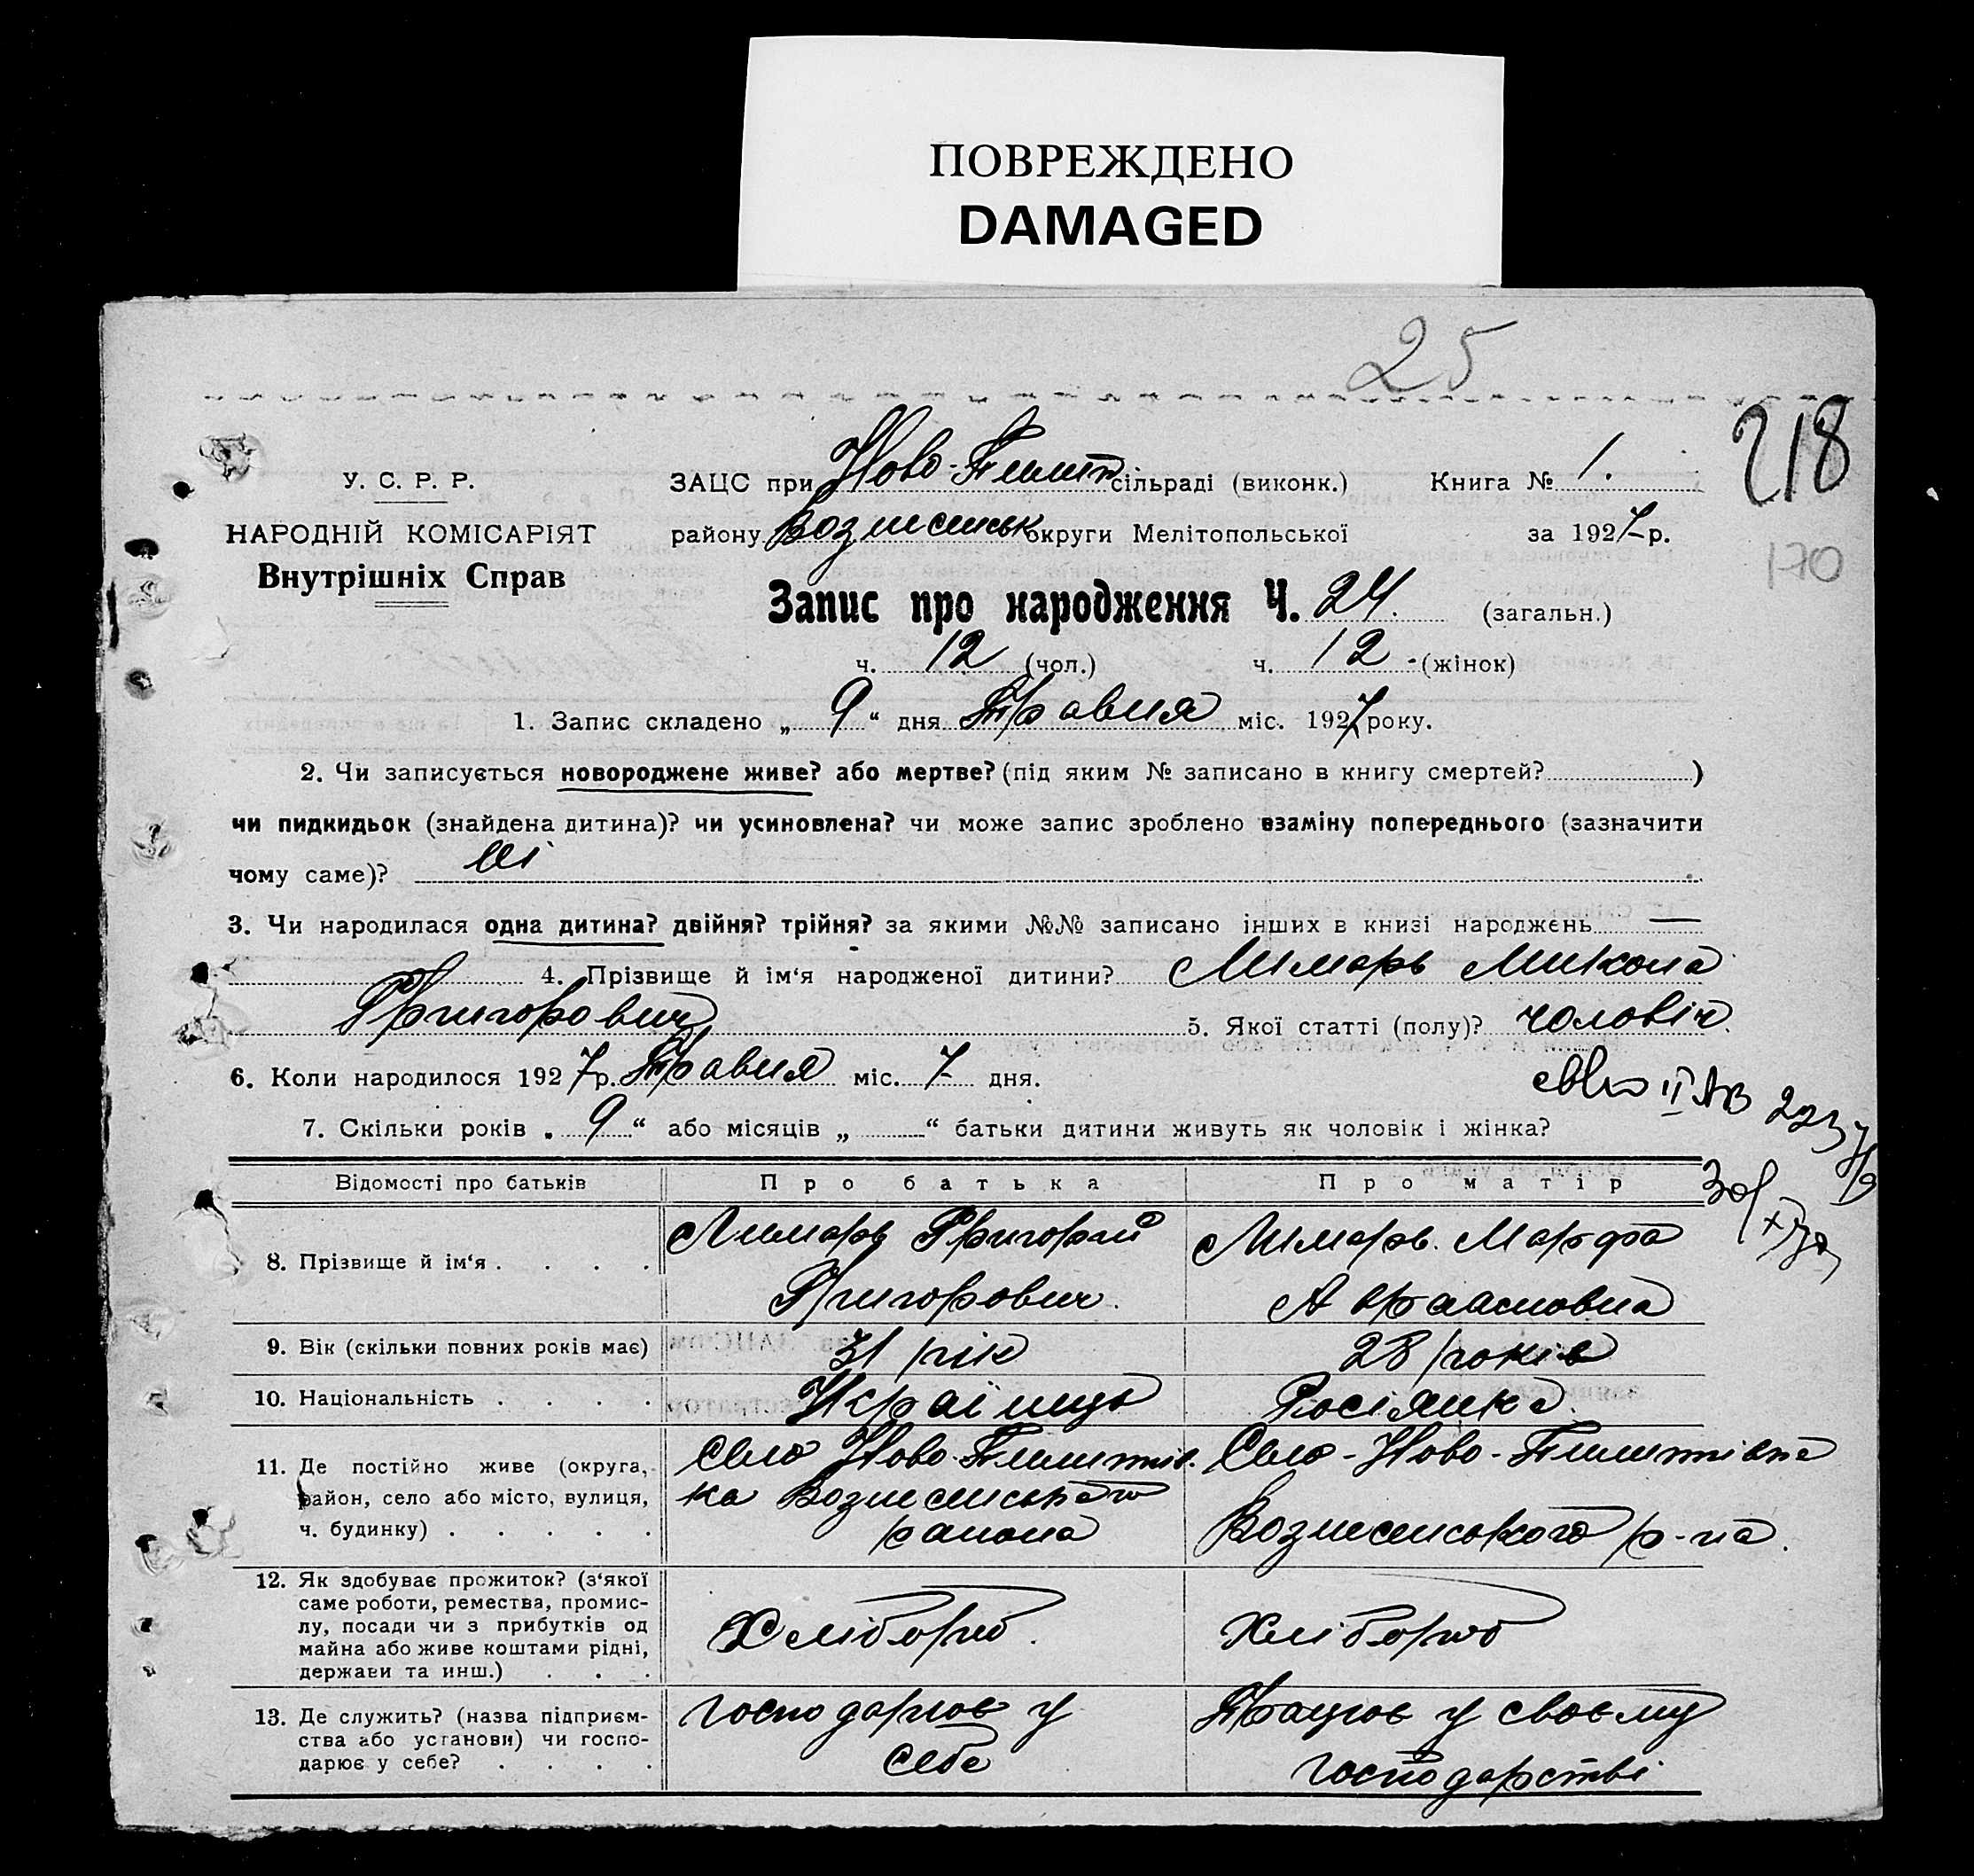 ПОВРЕЖДЕНО
DAMAGED
25
218
У. С. Р. Р.
ЗАЦС при Ново-Пилип сільраді (виконк.) Книга № 1.
НАРОДНІЙ КОМІСАРІЯТ
району Вознесенськ округи Мелітопольської за 1927 р.
170
Внутрішніх Справ
Запис про народження Ч. 24. (загальн.)
ч. 12 (чол.) ч. 12 (жінок)
1. Запис складено „ 9 “ дня Травня міс. 1927 року.
2. Чи записується новороджене живе? або мертве? (під яким № записано в книгу смертей? )
чи пидкидьок (знайдена дитина)? чи усиновлена? чи може запис зроблено взаміну попереднього (зазначити
чому саме)? Ні
3. Чи народилася одна дитина? двійня? трійня? за якими №№ записано інших в книзі народжень —
4. Прізвище й ім‘я народженої дитини? Лимарь Микола
Григорович 5. Якої статті (полу)? чоловіч.
6. Коли народилося 1927 р. Травня міс. 7 дня.
7. Скільки років „ 9 “ або місяців „ “ батьки дитини живуть як чоловік і жінка?
Відомості про батьків Про батька Про матір
8. Прізвище й ім‘я . . . . Лимарь Григорий Лимарь Марфа
Григорович.
9. Вік (скільки повних років має) 31 рік 28 років
10. Національність . . . . Украінць Росіянка
11. Де постійно живе (округа, Село Ново-Пилипів- Село-Ново-Пилипівка
район, село або місто, вулиця, ка Вознесенського Вознесенського р-на.
ч. будинку) . . . . . района
12. Як здобуває прожиток? (з‘якої
саме роботи, ремества, промис-
лу, посади чи з прибутків од Хлібороб. Хлібороб
майна або живе коштами рідні,
держави та инш.) . . .
13. Де служить? (назва підприєм- господарює у Працює у своєму
ства або установи) чи госпо- себе господарстві
дарює у себе? . . . .